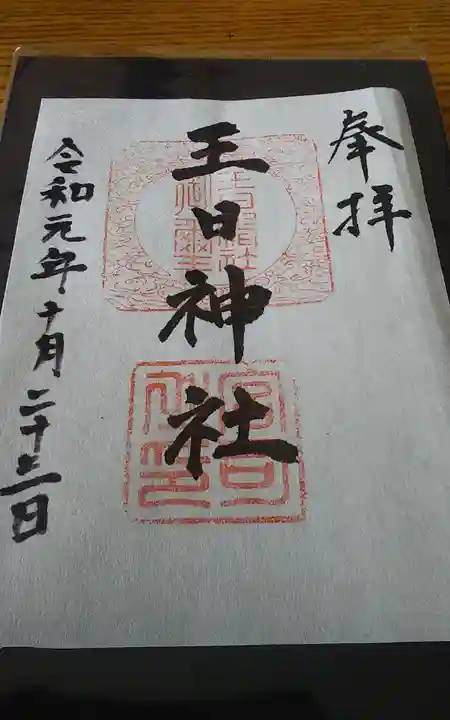 奉拝
王日神社
令和元年十月二十三日